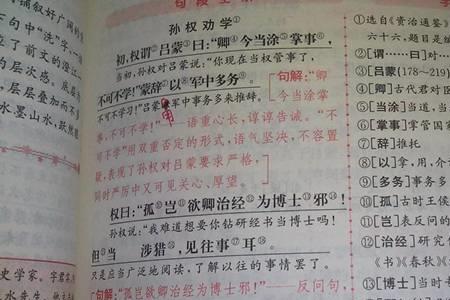 孙权劝学①
初,权谓②吕蒙③曰:“卿④今当涂⑤掌事⑥,
当初,孙权对吕蒙说:“你现在当权管事了,
不可不学!”蒙辞⑦以⑧军中多务⑨。
不可不学习!”吕蒙用军中事务多来推辞。
句解:“卿
今当涂掌
事,不可不学!”语重心长,谆谆告诫。“不
可不学”用双重否定的形式,语气坚决,不容置
疑,表现了孙权对吕蒙要求严格,
同时严厉中又可见关心、厚望。
权曰:“孤⑩岂⑪欲卿治经⑫为博士⑬邪⑭!
孙权说:“我难道想要你钻研经书当博士吗!
但当涉猎,见往事耳
只是应当广泛地阅读,了解以往的事情罢了。
句解:“孤岂欲卿治经为博士邪!”反问句,
①选自《资治通鉴》
六十六。题目是
②[谓……曰]对
③[吕蒙(178—219)]
④[卿]古代君对臣
⑤[当涂]当道,当
⑥[掌事]掌管国家
⑦[辞]推托
⑧[以]拿,用,介
⑨[多务]事务多
⑩[孤]古时王侯
⑪[岂]表反问的
⑫[治经]研究
《书》《春秋》
⑬[博士]当时
上铺叙好广阔的
句中“洗”字,一
了前文的澄江
的层次感。底层
层层叠加而不
水墨山水,跃
史学家。字君实,